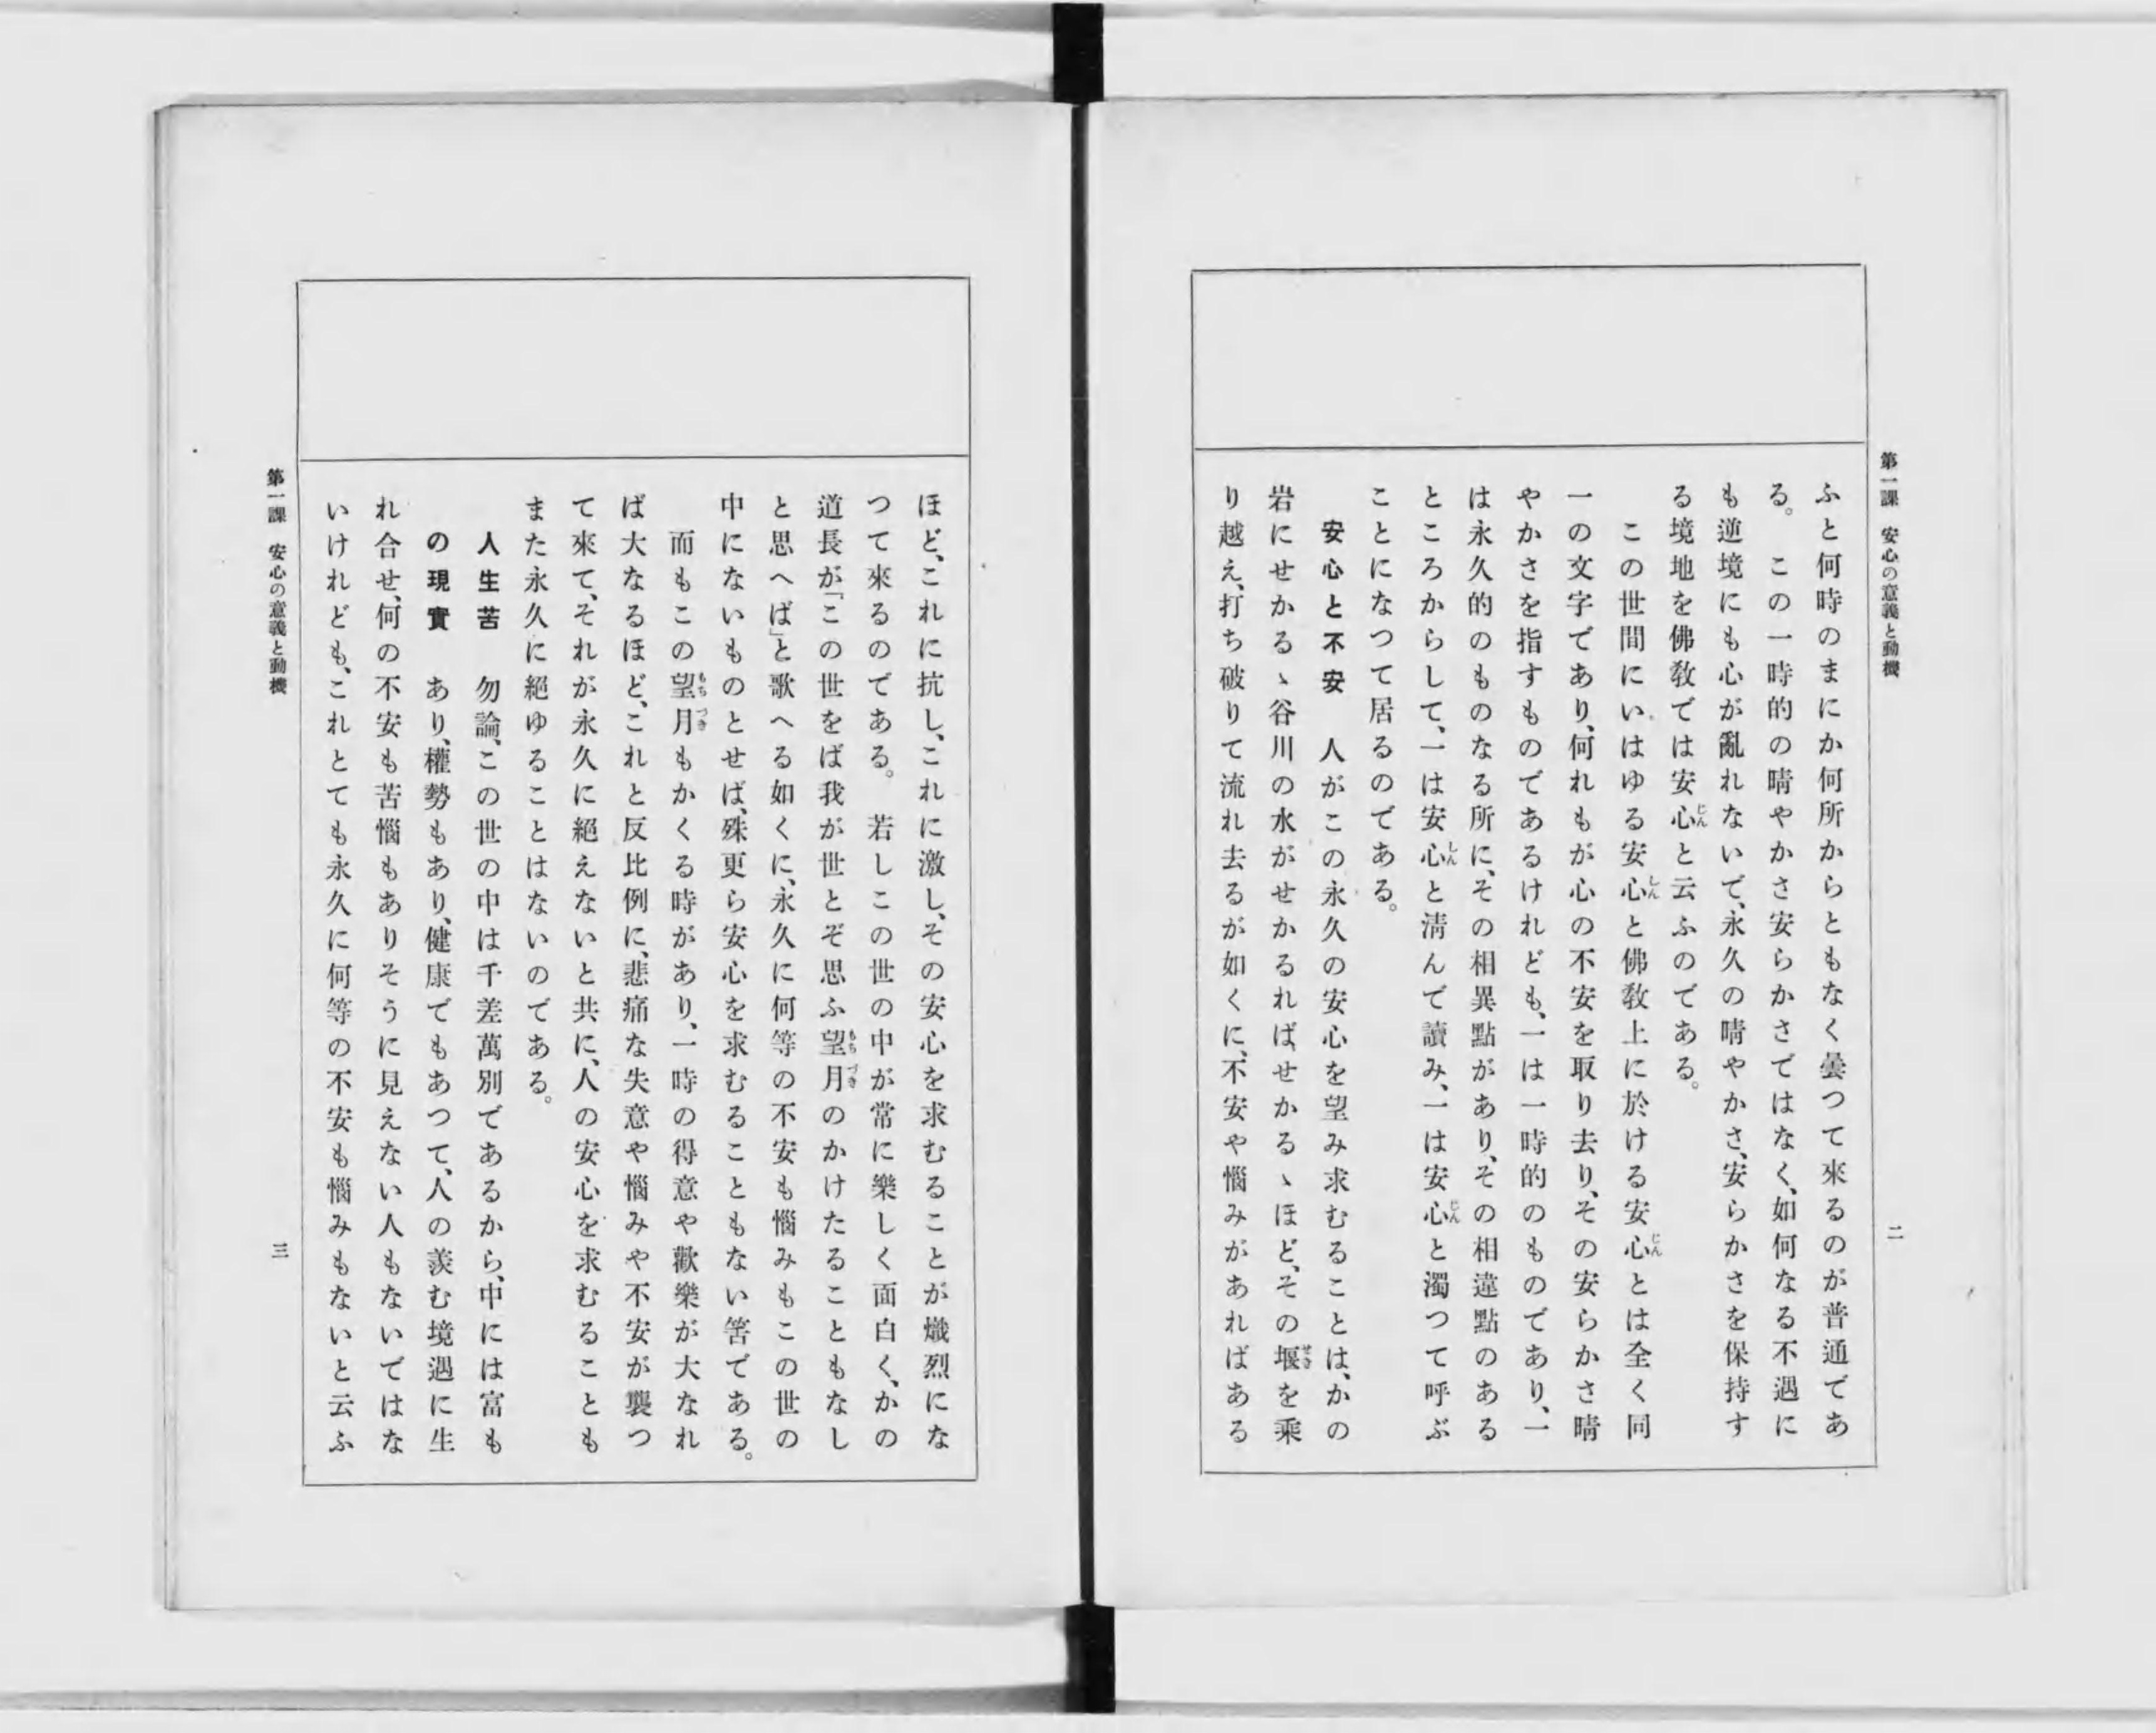 第一課 安心の意義と動機
二
ふと何時のまにか何所からともなく曇つて來るのが普通であ
る。 この一時的の晴やかさ安らかさではなく、如何なる不遇に
も逆境にも心が亂れないで、永久の晴やかさ、安らかさを保持す
る境地を佛教では安心じんと云ふのである。
この世間にいはゆる安心しんと佛教上に於ける安心じんとは全く同
一の文字であり、何れもが心の不安を取り去り、その安らかさ晴
やかさを指すものであるけれども、一は一時的のものであり、一
は永久的のものなる所に、その相異點があり、その相違點のある
ところからして、一は安心しんと淸んで讀み、一は安心じんと濁つて呼ぶ
ことになつて居るのである。
安心と不安 人がこの永久の安心を望み求むることは、かの
岩にせかるゝ谷川の水がせかるれば、せかるゝほど、その堰せきを乘
り越え、打ち破りて流れ去るが如くに、不安や惱みがあればある
ほど、これに抗し、これに激し、その安心を求むることが熾烈にな
つて來るのである。 若しこの世の中が常に樂しく面白く、かの
道長が「この世をば我が世とぞ思ふ望もち月づきのかけたることもなし
と思へば」と歌へる如くに、永久に何等の不安も惱みもこの世の
中にないものとせば、殊更ら安心を求むることもない筈である。
而もこの望もち月づきもかくる時があり、一時の得意や歡樂が大なれ
ば大なるほど、これと反比例に、悲痛な失意や惱みや不安が襲つ
て來て、それが永久に絕えないと共に、人の安心を求むることも
また永久に絕ゆることはないのである。
人生苦 勿論、この世の中は千差萬別であるから、中には富も
の現實 あり、權勢もあり、健康でもあつて、人の羨む境遇に生
れ合せ、何の不安も苦惱もありそうに見えない人もないではな
いけれども、これとても永久に何等の不安も惱みもないと云ふ
第一課 安心の意義と動機
三